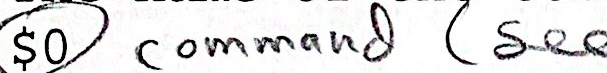 $0 command (see